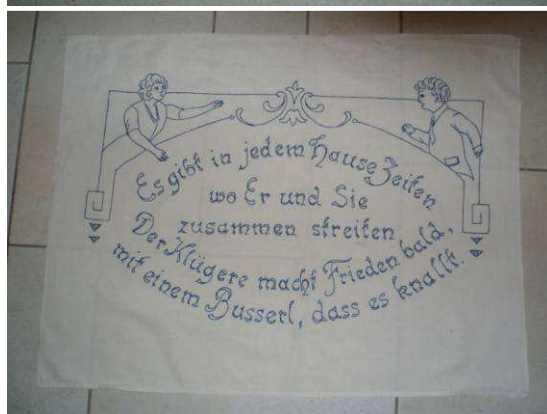 Es gibt in jedem Hause Zeiten
wo Er und Sie
zusammen streiten
Der Klügere macht Frieden bald,
mit einem Busserl, dass es knallt.